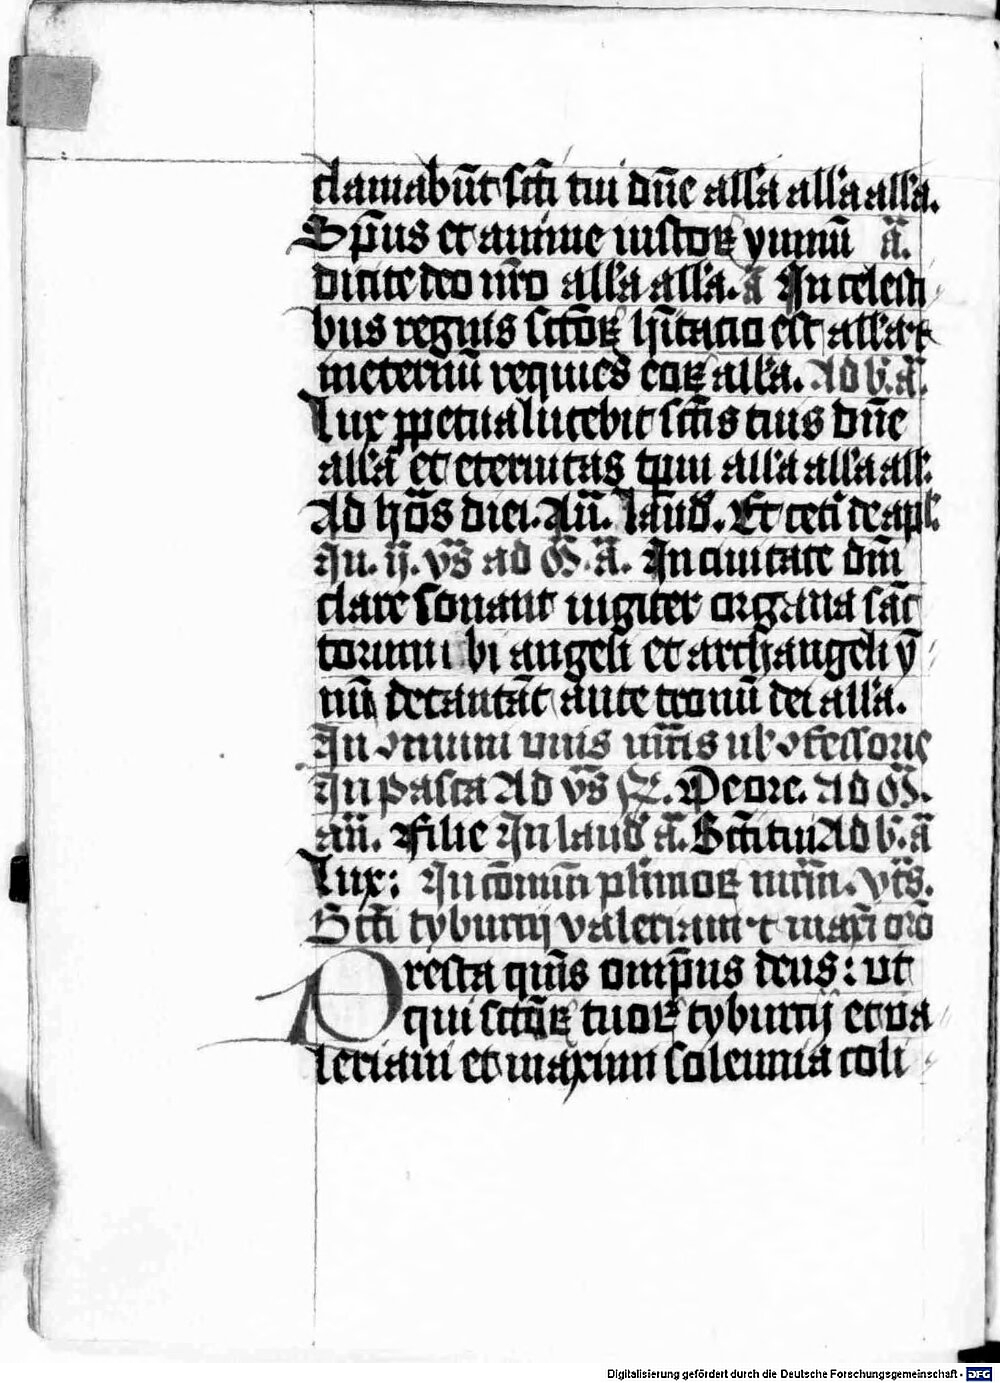 clamabūt scti tui dn̄e alla alla alla.
Sp̄us et anime iustoꝝ ymnū ā.
dicite deo nr̄o alla alla. ā In celesti
bus regnis sctōꝝ hītatio est alla ⁊
in eternū requies eoꝝ alla. Ad b. ā.
Lux ꝑpetua lucebit sctīs tuis dn̄e
alla et eternitas tp̄m alla alla all.
Ad hōs diei. An̄. laud. Et cet̄i de apl.
In. ij. vs̄ ad M̄. ā. In ciuitate dn̄i
clare sonant iugiter organa sāc
torum ubi angeli et archangeli ȳ
nū decantāt ante tronū dei alla.
In ꝯmuni unius mr̄is ul ꝯfessoris
In pasca Ad vs̄ R. Precre. ad M̄.
an̄. Filie In laud ā. Scti tui Ad b. ā
Lux: In cōmuni plimoꝝ mr̄m. vs̄.
Scti tyburtij valeriani ⁊ maxi orō
Presta quīs omp̄ns deus: ut
qui sctōꝝ tuoꝝ tyburtij et va
leriani et maximi solennia coli